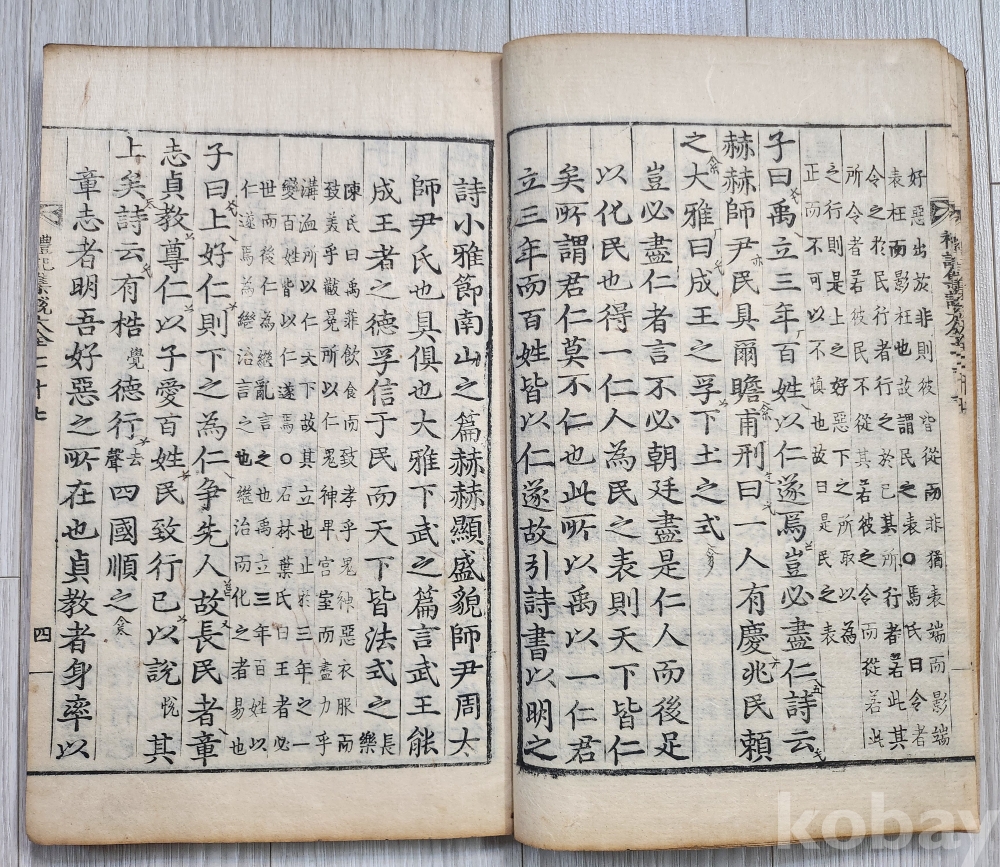 好惡出放非則彼皆從而非猶表端而影端
表枉而影枉也故謂民之表○馬氏曰令者
令之於民行者行之於己其所行者若此其
所令者若彼民不從其若彼之令而從若此
之行則是上之好惡下之所取以為
正而不可以不慎也故曰是民之表
子曰禹立三年百姓以仁遂焉豈必盡仁詩云
赫赫師尹民具爾瞻甫刑曰一人有慶兆民賴
之大雅曰成王之孚下土之式
豈必盡仁者言不必朝廷盡是仁人而後足
以化民也得一仁人為民之表則天下皆仁
矣所謂君仁莫不仁也此所以禹以一仁君
立三年而百姓皆以仁遂故引詩書以明之
詩小雅節南山之篇赫赫顯盛貌師尹周太
師尹氏也具俱也大雅下武之篇言武王能
成王者之德孚信于民而天下皆法式之長樂
陳氏曰禹菲飲食而致孝乎鬼神惡衣服而
致美乎黻冕卑宮室而盡力乎
溝洫所以仁天下故其立也止於三年之一
變百姓皆以仁遂焉○石林葉氏曰王者必
世而後仁為繼亂言之也禹立三年百姓以
仁遂焉為繼治言之也繼治而化之者易也
子曰上好仁則下之為仁爭先人故長民者章
志貞教尊仁以子愛百姓民致行己以說悅其
上矣詩云有梏覺德行去聲四國順之
章志者明吾好惡之所在也貞教者身率以
禮記集說大全二十七
四
kobay